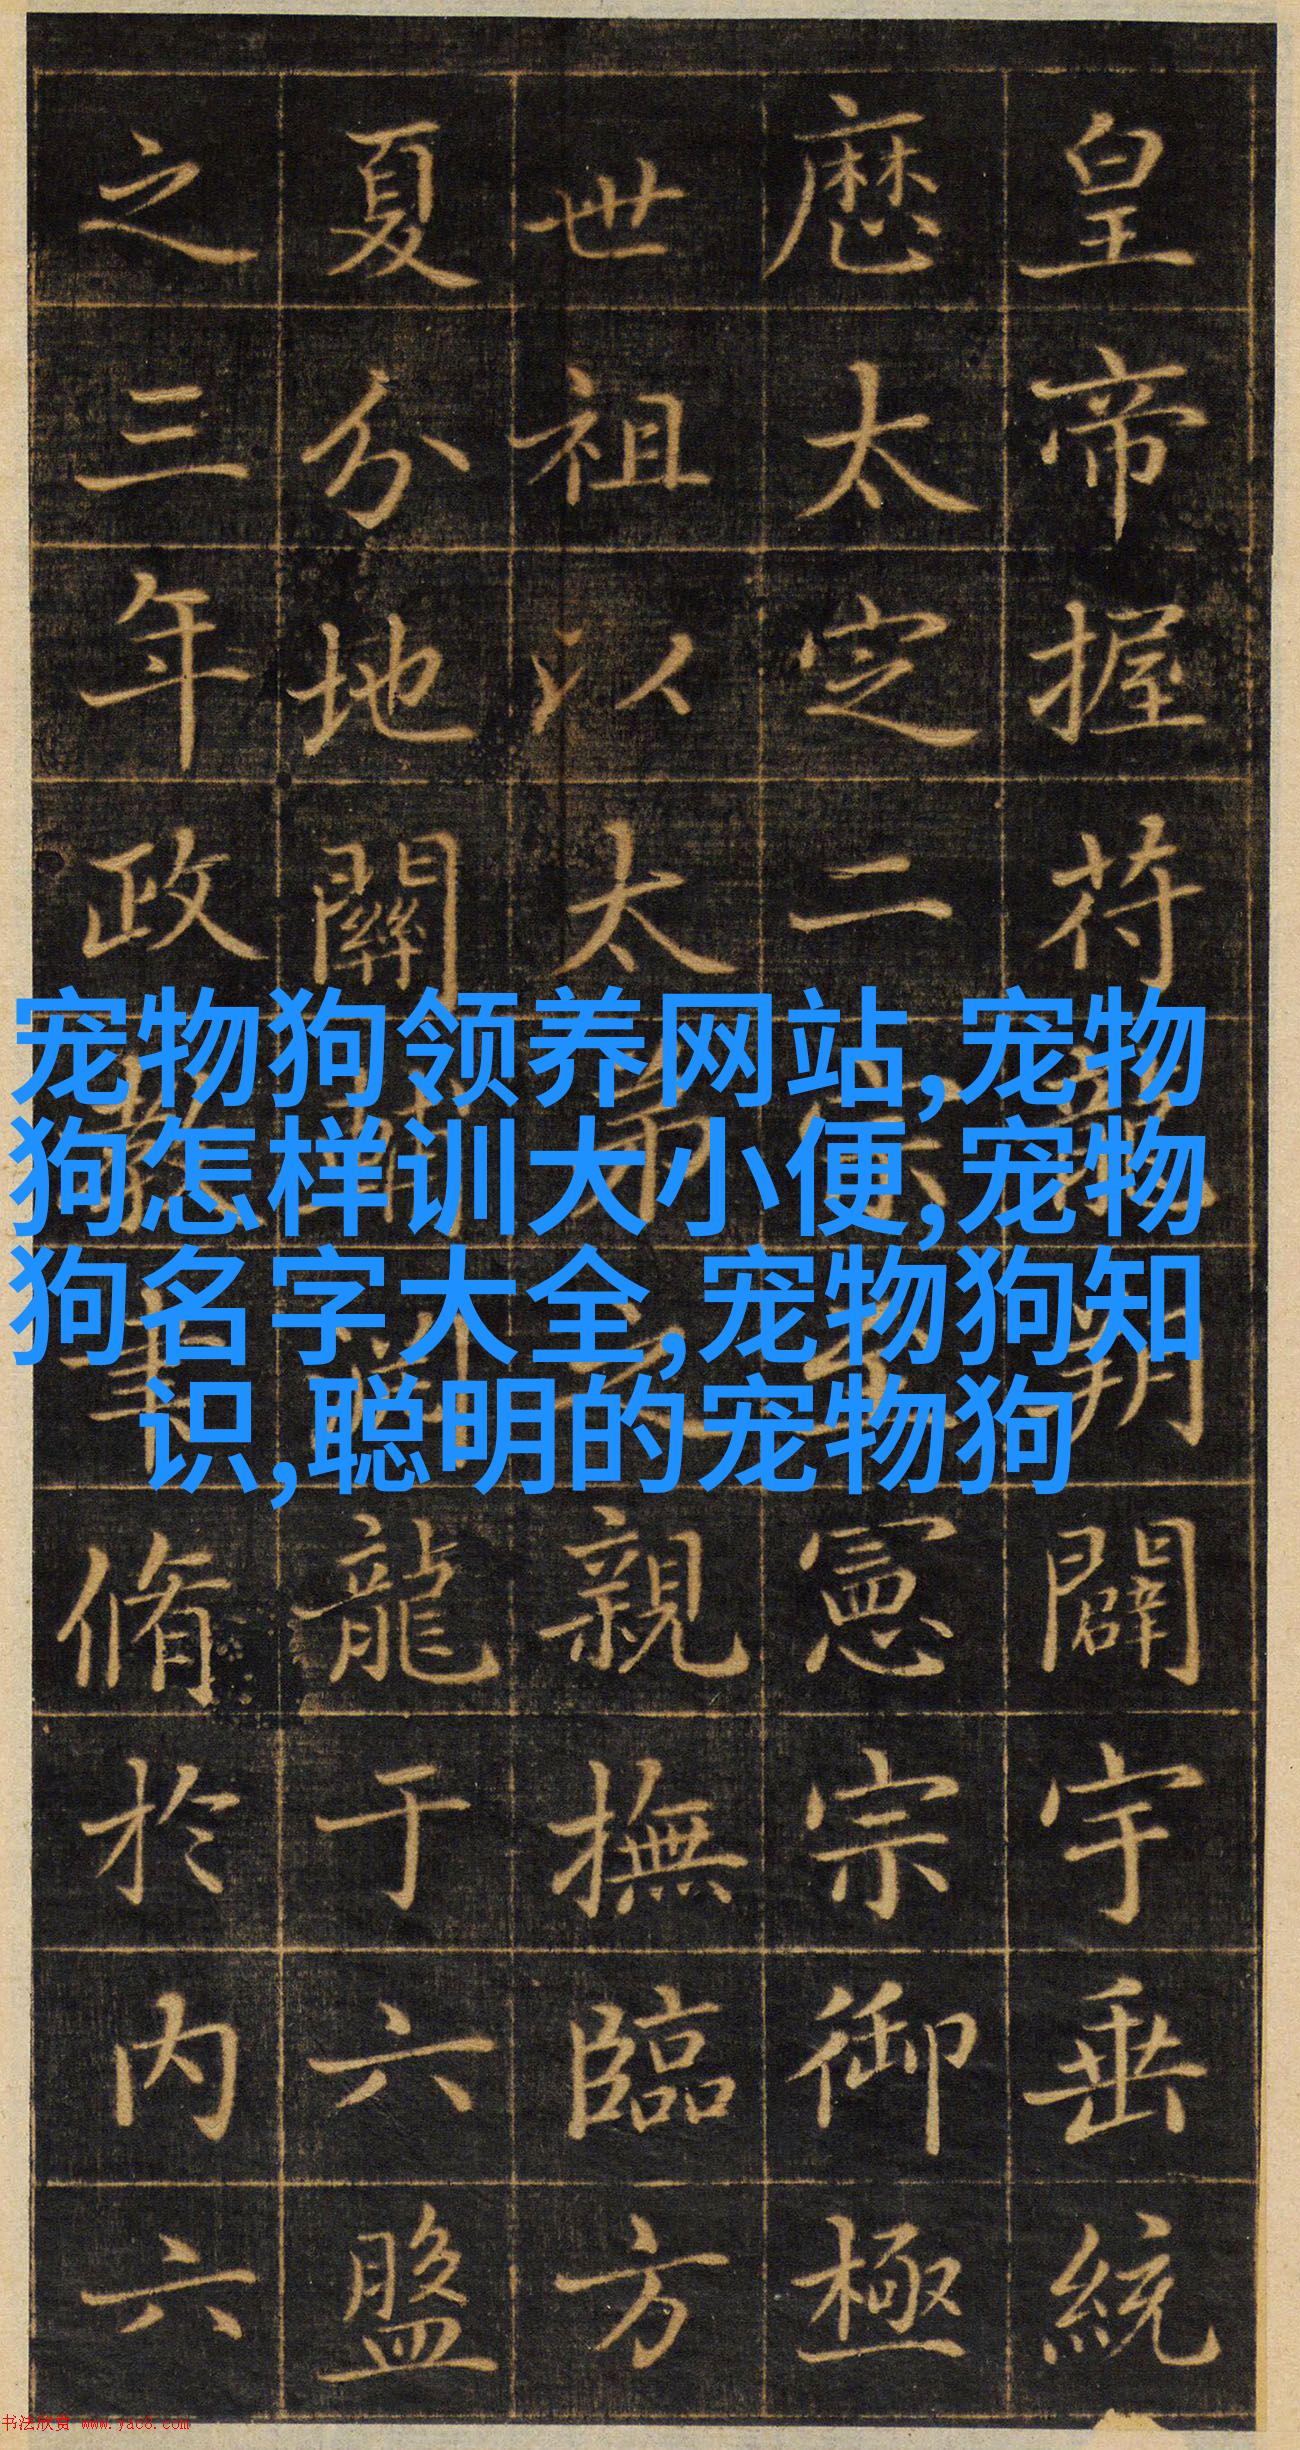 皇帝握符闢宇垂統
厯太定二憲宗御極
世祖以太親撫臨方
夏分地關龍于六盤
之三年政脩於内六
宠物狗领养网站,宠物
狗怎样训大小便,宠物
狗名字大全,宠物狗知
识,聪明的宠物狗
书法欣赏 www.yac8.com